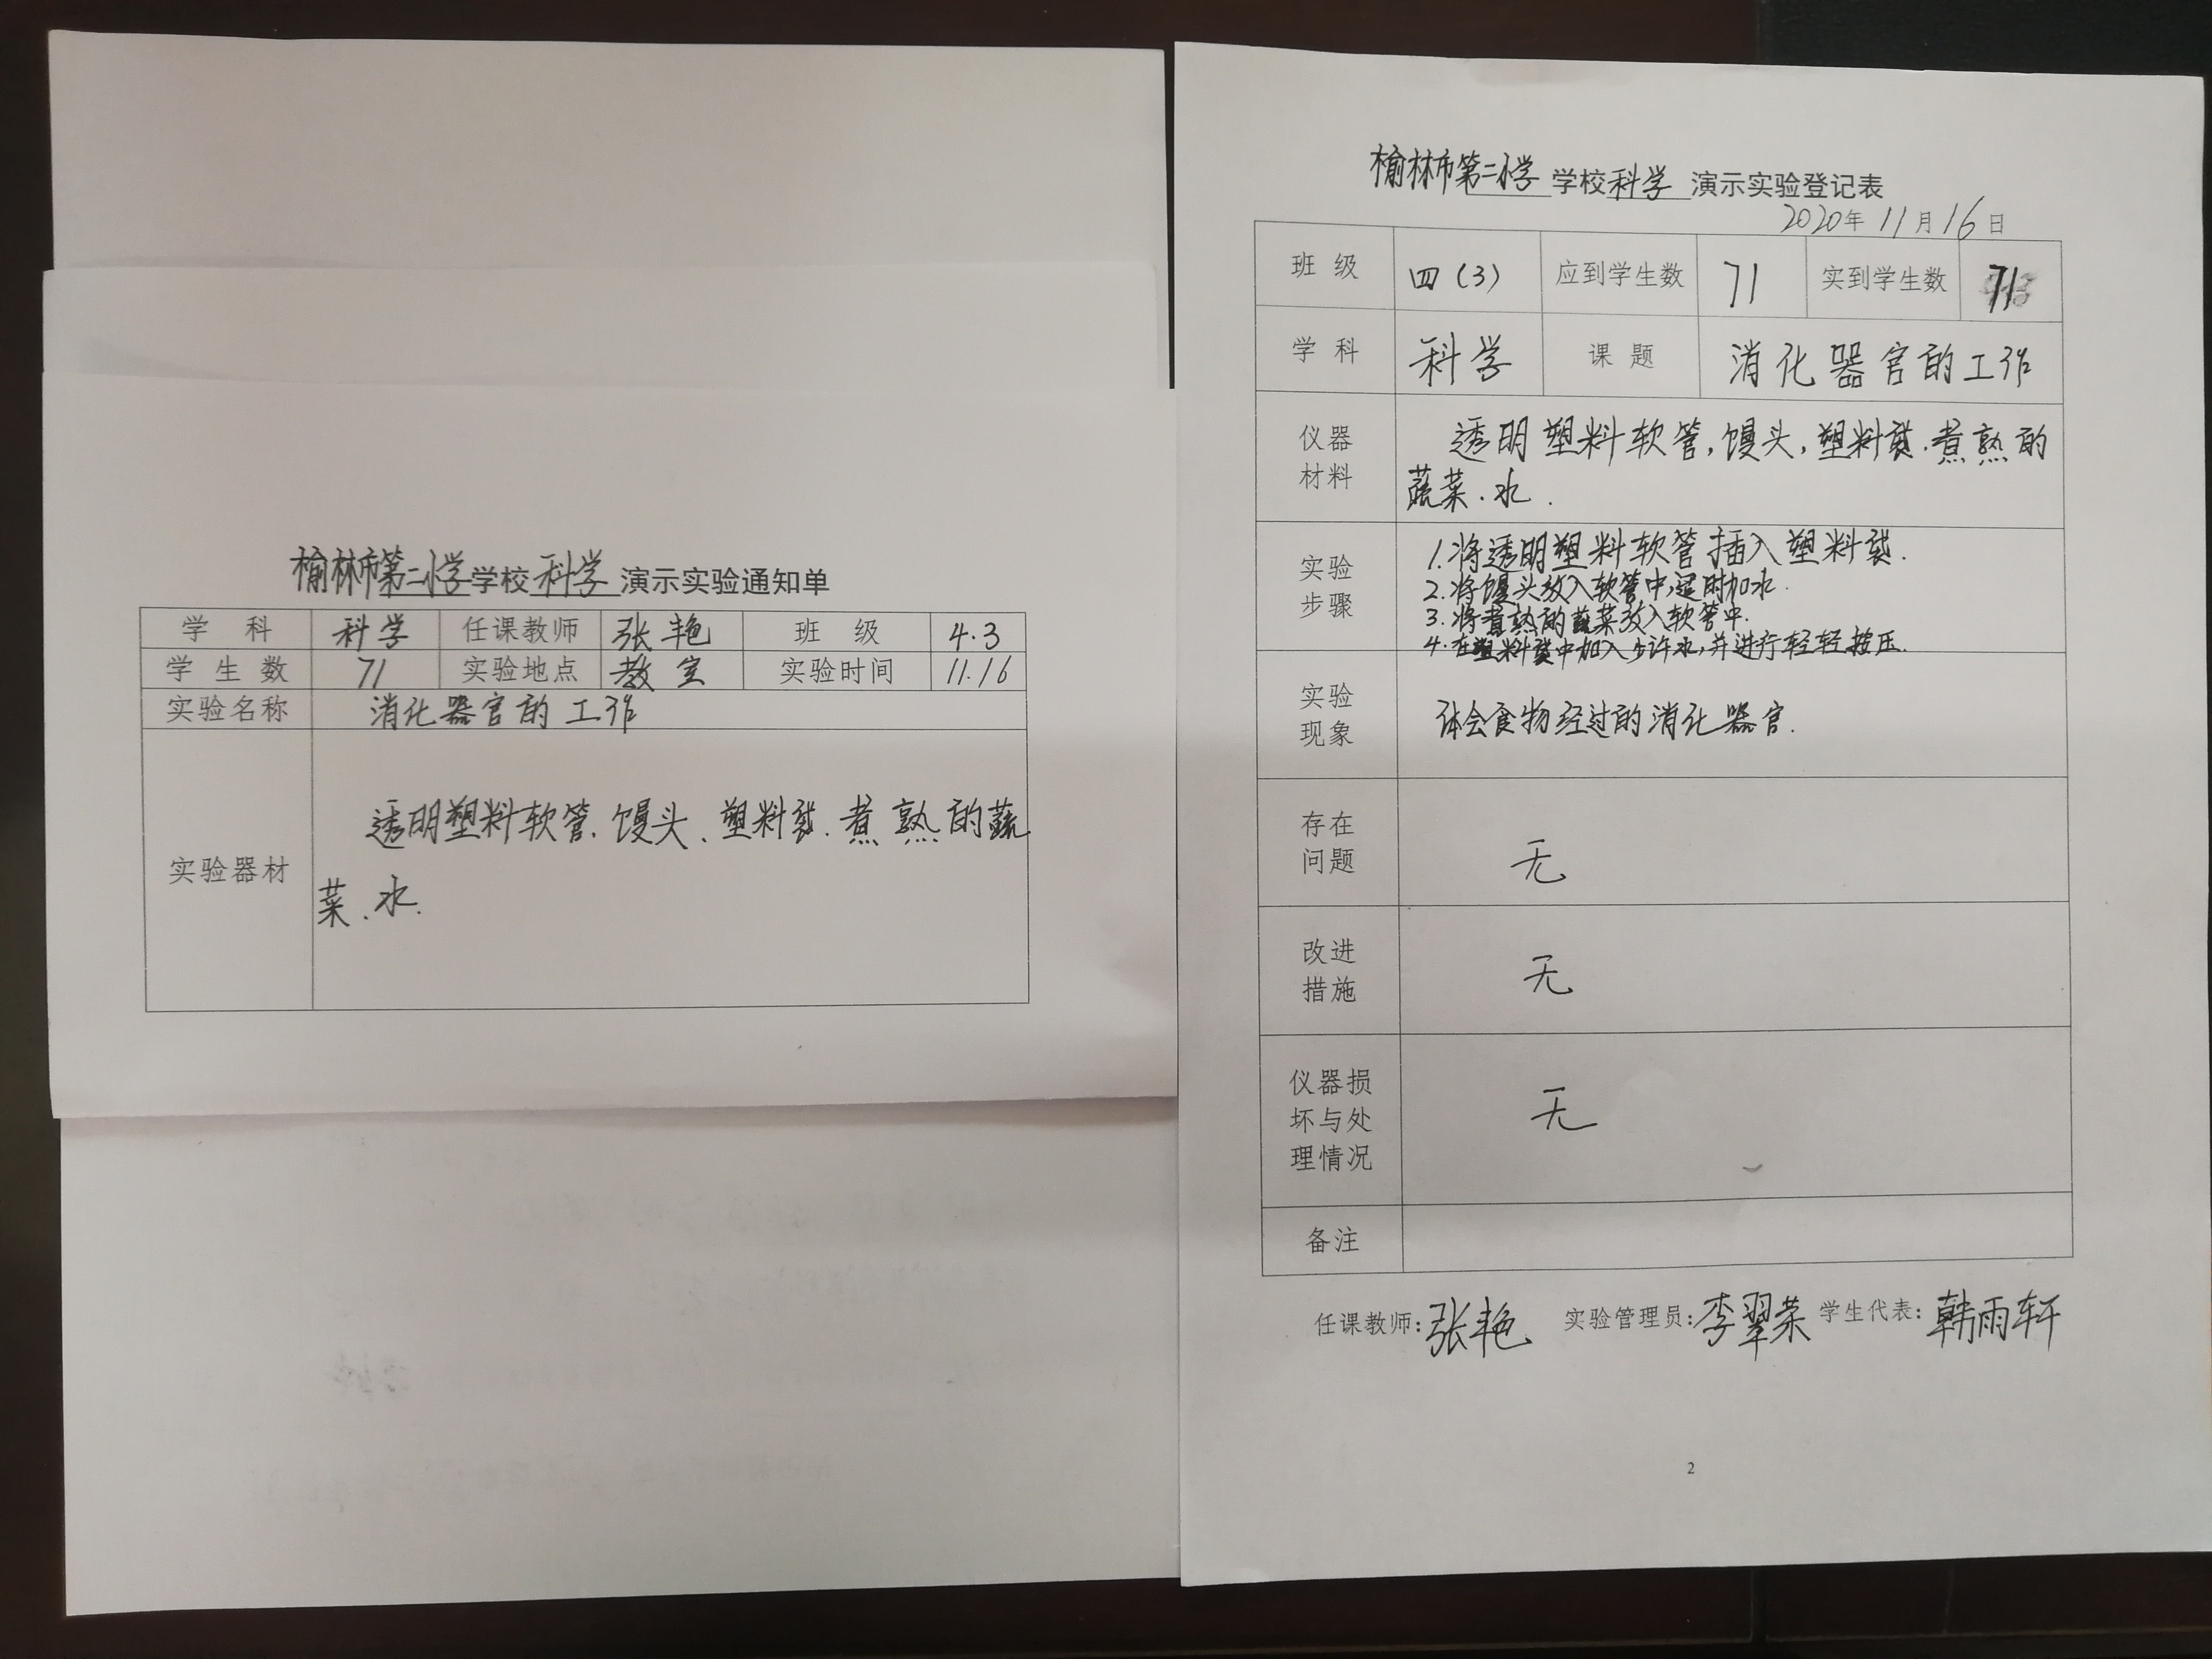 榆林市第二小学学校科学演示实验通知单
学 科 科学 任课教师 张艳 班 级 4.3
学 生 数 71 实验地点 教室 实验时间 11.16
实验名称 消化器官的工作
实验器材
透明塑料软管、馒头、塑料袋、煮熟的蔬
菜、水.
榆林市第二小学学校科学演示实验登记表
2020年11月16日
班 级 四(3) 应到学生数 71 实到学生数 71
学 科 科学 课 题 消化器官的工作
仪器
材料
透明塑料软管,馒头,塑料袋、煮熟的
蔬菜、水.
实验
步骤
1.将透明塑料软管插入塑料袋.
2.将馒头放入软管中,适时加水.
3.将煮熟的蔬菜放入软管中.
4.在塑料袋中加入少许水,并进行轻轻按压.
实验
现象
体会食物经过的消化器官.
存在
问题
无
改进
措施
无
仪器损
坏与处
理情况
无
备注
任课教师:张艳 实验管理员:李翠荣 学生代表:韩雨轩
2